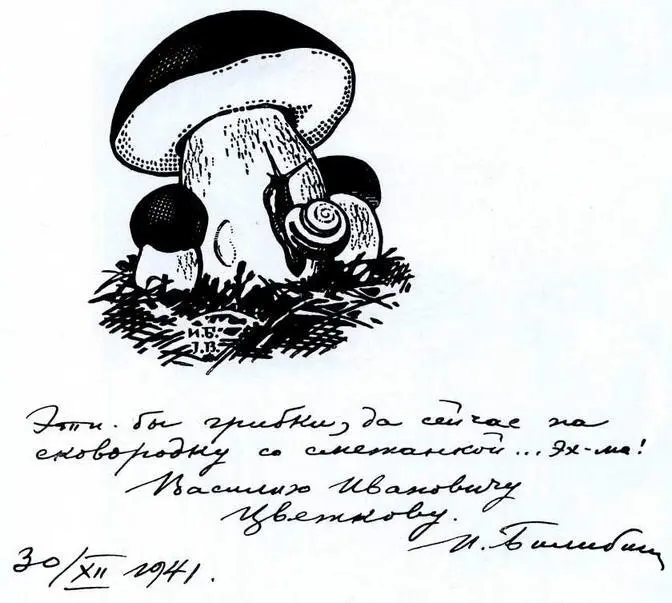 И.Б.
Эти бы грибки, да сейчас на
сковородку со сметанкой... Эх-ма!
Василию Ивановичу
Цветкову.
И. Билибин
30/XII 1941.